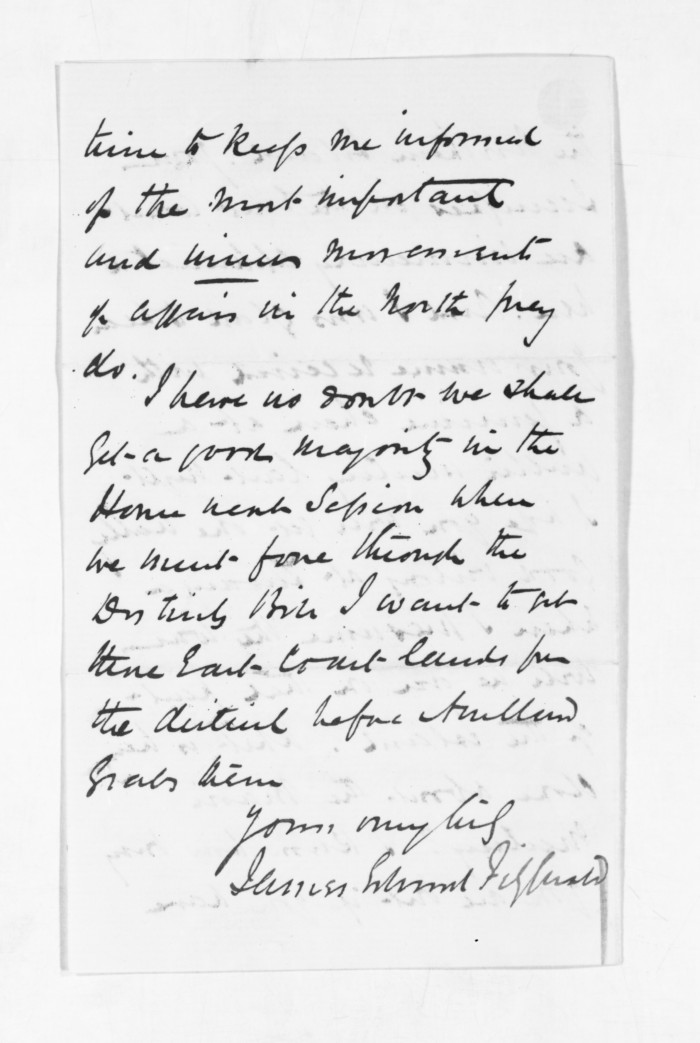 time to keep me informed
of the most important
and inner movements
of affairs in the North pray
do.
I have no doubt we shall
get a good majority in the
House next Session when
we must force through the
Districts Bill I want to get
those East Coast lands for
the district before Auckland
grabs them
Yours
James Edward FitzGerald